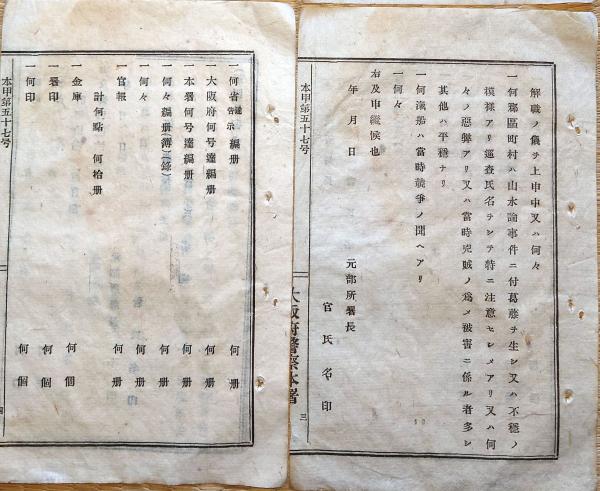 解職ノ儀ヲ上申中又ハ何々
一何郡區町村ハ山水論事件ニ付葛藤ヲ生シ又ハ不穩ノ
模樣アリ巡査氏名ヲシテ特ニ注意セシメアリ又ハ何
々ノ惡弊アリ又ハ當時兇賊ノ爲メ被害ニ係ル者多シ
其他ハ平穩ナリ
一何漁船ハ當時競爭ノ聞ヘアリ
一何々
右及申繼候也
年月日
元部所署長
官氏名印
本甲第五十七号
大阪府警察本署
三
一何省達告示編册 何册
一大阪府何号達編册 何册
一本署何号達編册 何册
一何々編册(簿)(錄) 何册
一何々 何册
一官報 何册
計何點 何拾册
一金庫 何個
一署印 何個
一何印 何個
本甲第五十七号
四